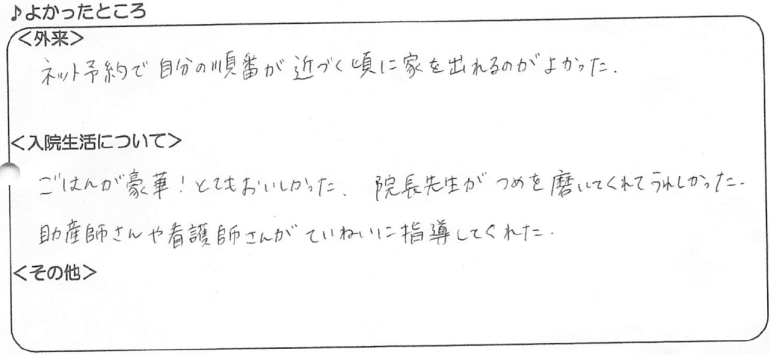 ♪よかったところ
<外来>
ネット予約で自分の順番が近づく頃に家を出れるのがよかった.
<入院生活について>
ごはんが豪華!とてもおいしかった. 院長先生がつめを磨いてくれてうれしかった.
助産師さんや看護師さんがていねいに指導してくれた.
<その他>